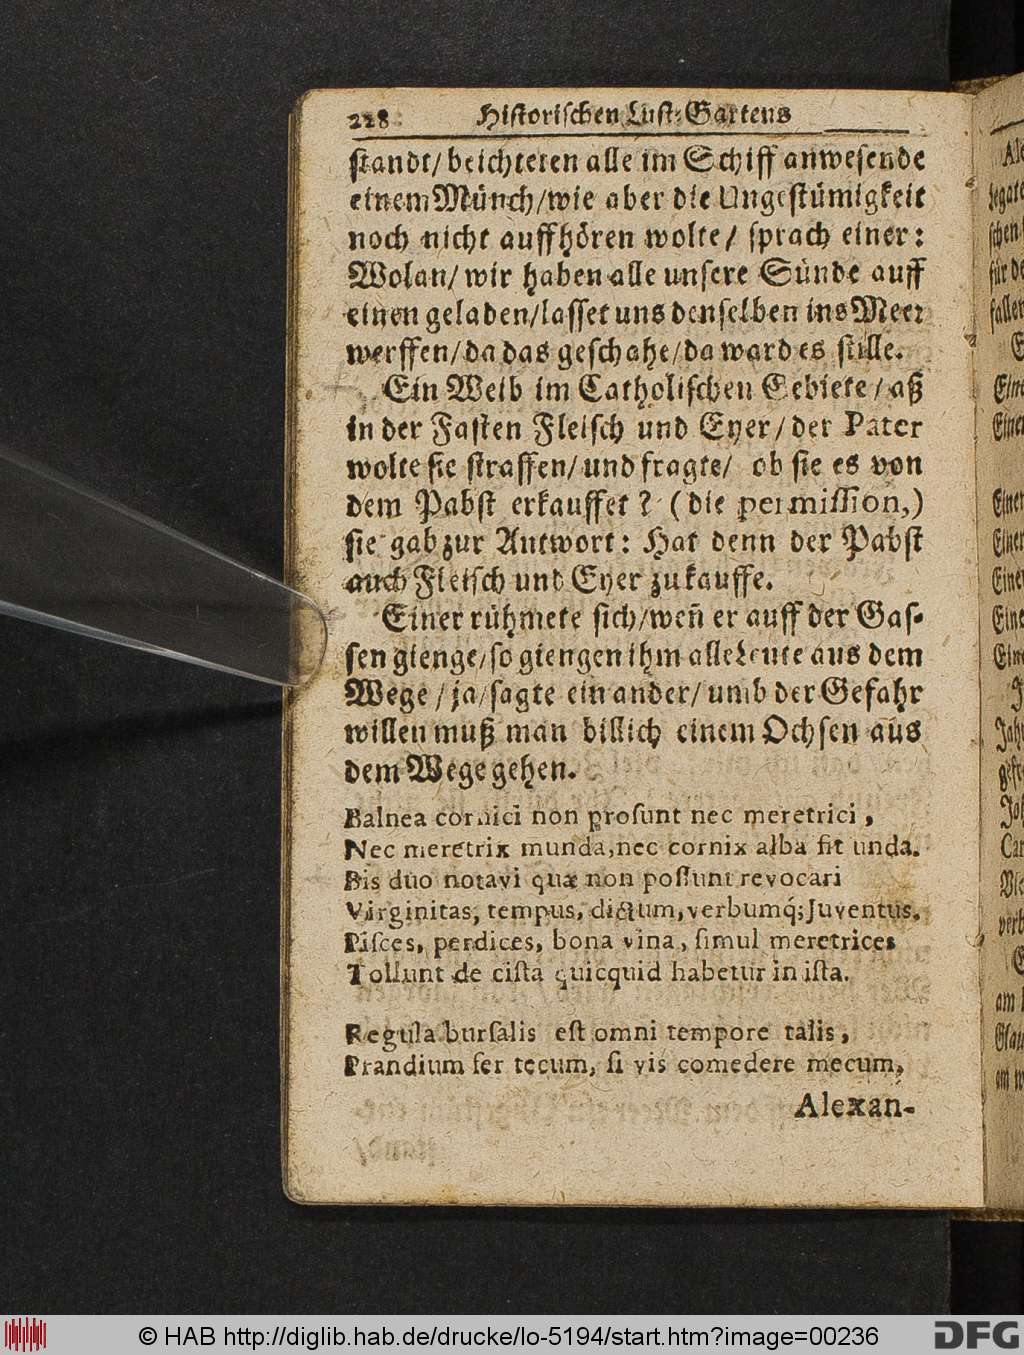 228 Historischen Lust-Gartens
standt/ beichteten alle im Schiff anwesende
einem Münch/wie aber die Ungestümigkeit
noch nicht auffhören wolte/ sprach einer:
Wolan/ wir haben alle unsere Sünde auff
einen geladen/lasset uns denselben ins Meer
werffen/da das geschahe/da ward es stille.
Ein Weib im Catholischen Gebiete/aß
in der Fasten Fleisch und Eyer/ der Pater
wolte sie straffen/ und fragte/ ob sie es von
dem Pabst erkauffet? (die permission,)
sie gab zur Antwort: Hat denn der Pabst
auch Fleisch und Eyer zukauffe.
Einer rühmete sich/wen̄ er auff der Gas-
sen gienge/so giengen ihm alle Leute aus dem
Wege/ ja/sagte ein ander/ umb der Gefahr
willen muß man billich einem Ochsen aus
dem Wege gehen.
Balnea cornici non prosunt nec meretrici,
Nec meretrix munda, nec cornix alba fit unda.
Bis duo notavi quæ non possunt revocari
Virginitas, tempus, dictum, verbumq́; Juventus.
Pisces, perdices, bona vina, simul meretrices
Tollunt de cista quicquid habetur in ista.
Regula bursalis est omni tempore talis,
Prandium fer tecum, si vis comedere mecum,
Alexan-
© HAB http://diglib.hab.de/drucke/lo-5194/start.htm?image=00236
DFG